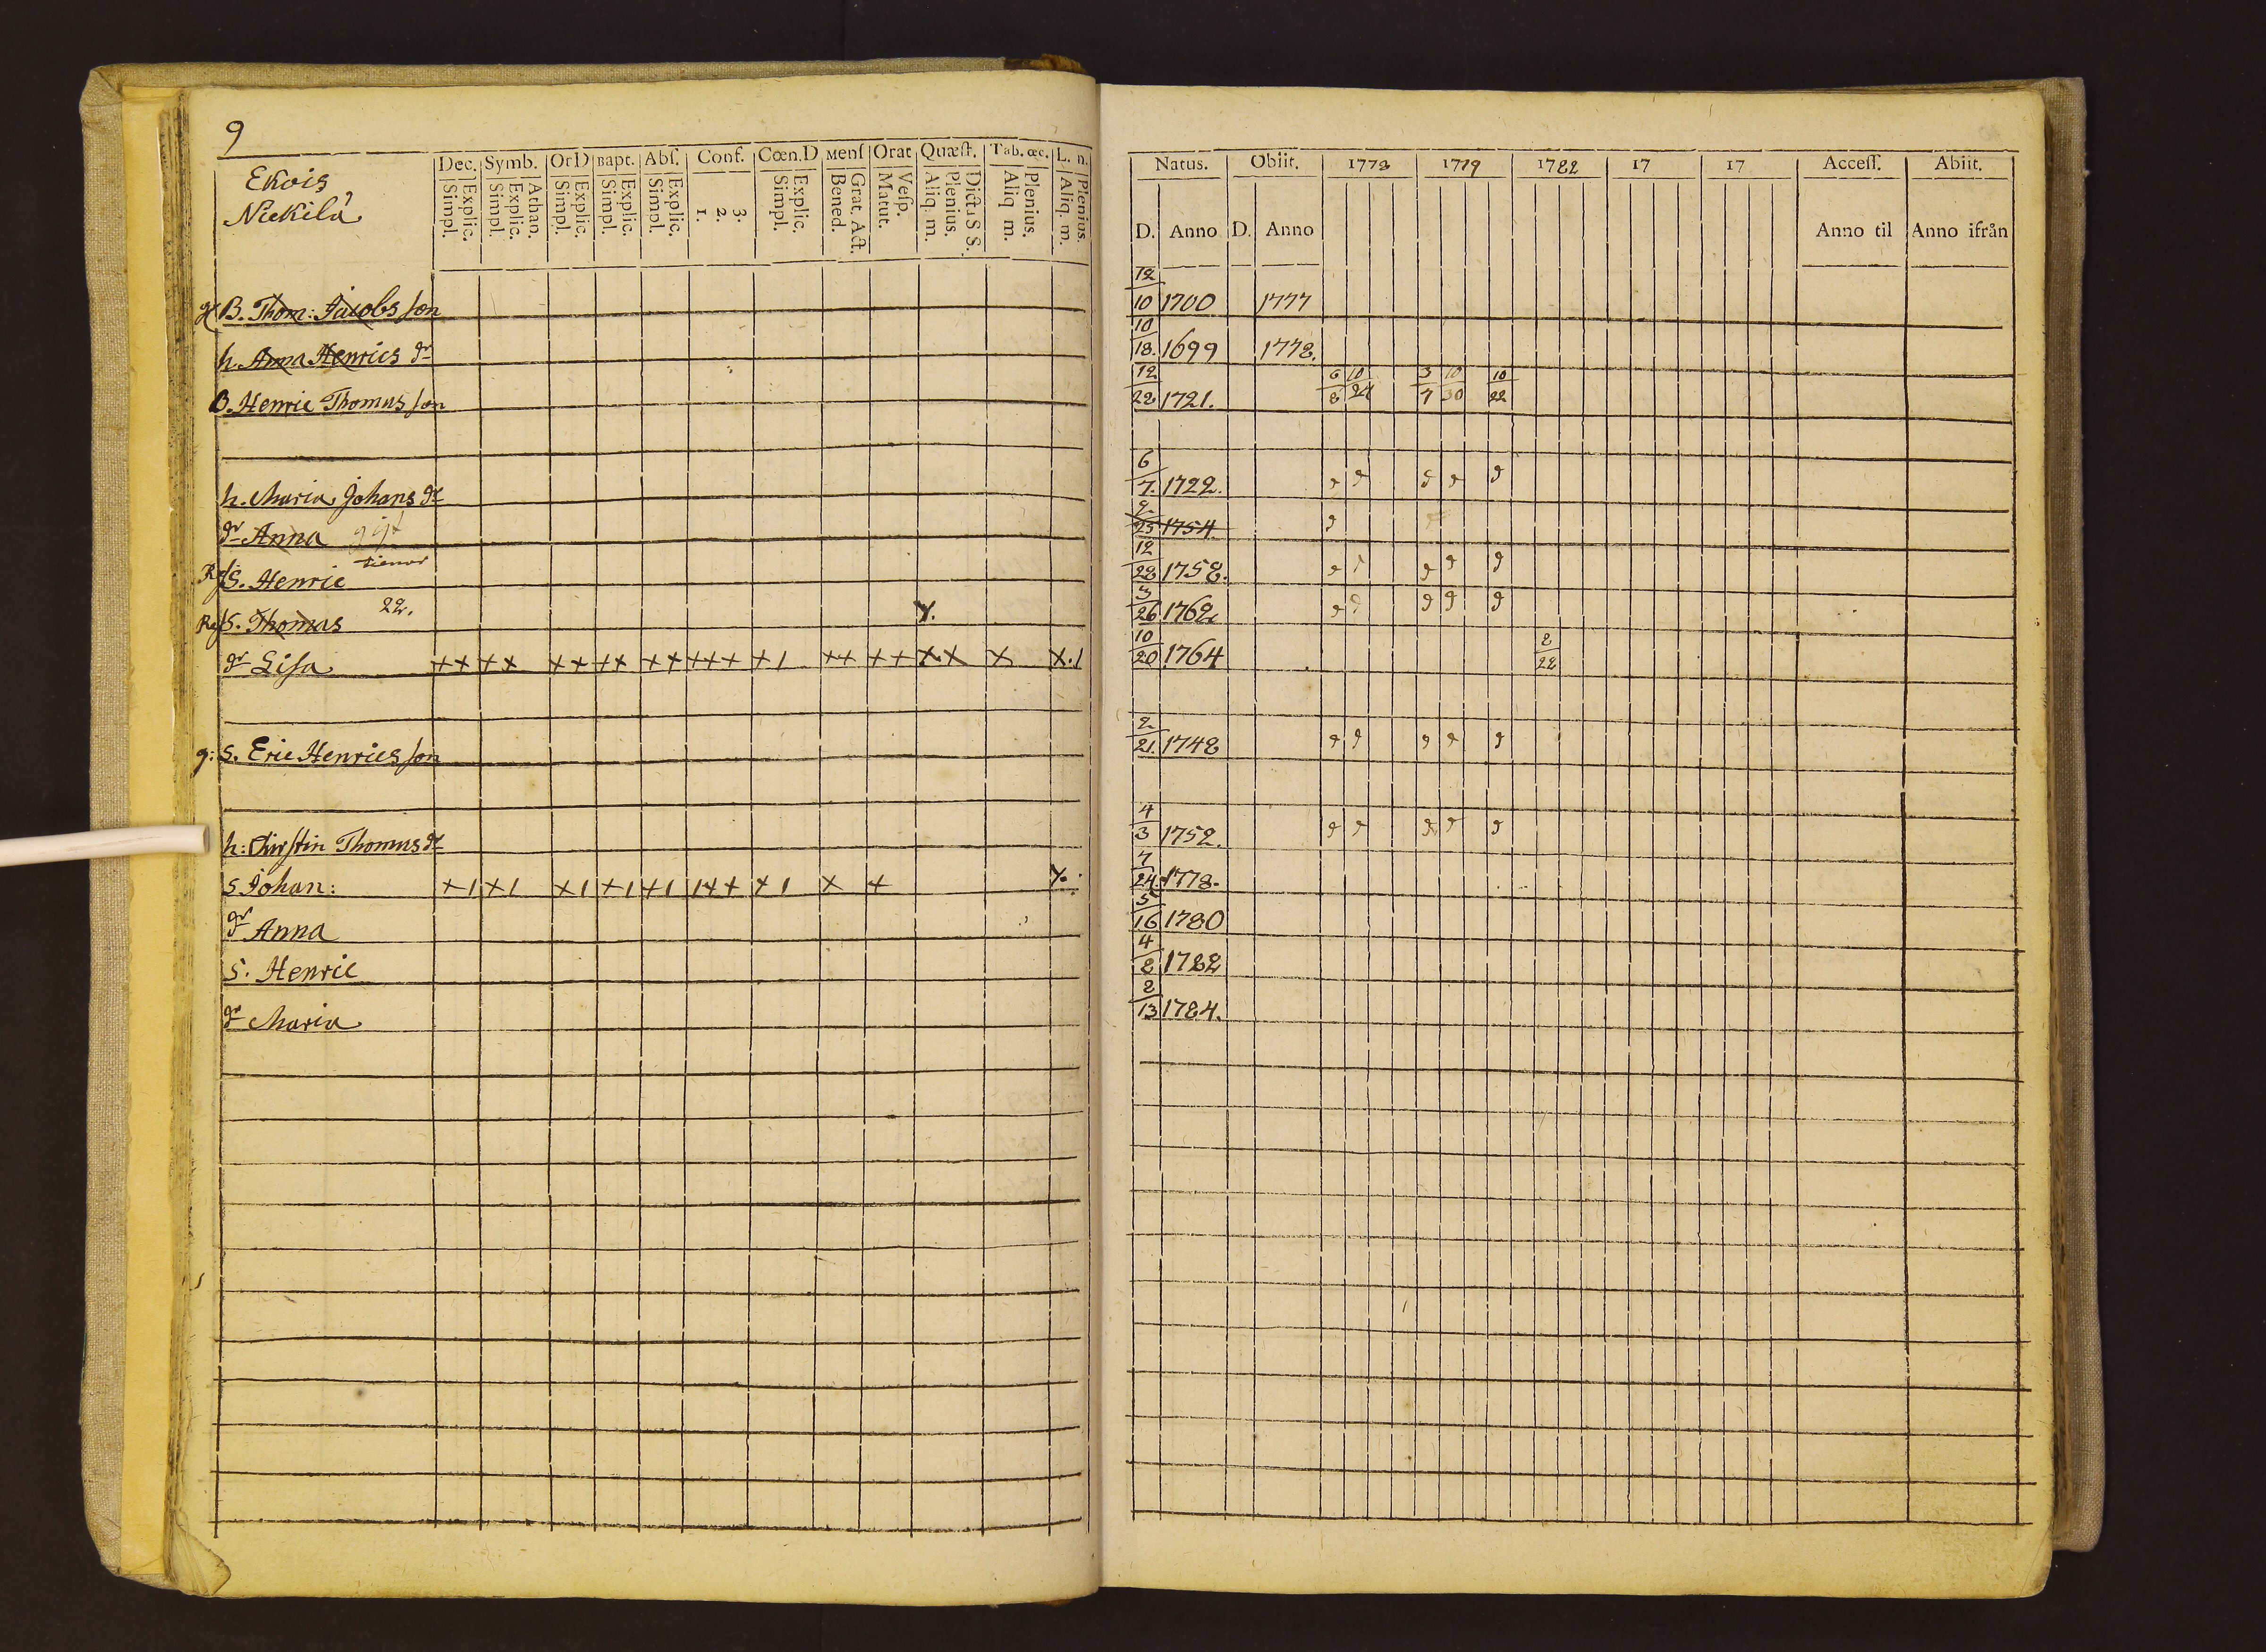 9
Ekois
Nickilä
Dec. Symb. Or D Bapt. Abſ. Conf. Cœn.D Menſ Orat Quæſt. Tab. œc. L. n.
Simpl. Explic. Simpl. Explic. Athan. Simpl. Explic. Simpl. Explic. Simpl. Explic. 1. 2. 3. Simpl. Explic. Bened. Grat. Act. Matut. Veſp. Aliq. m. Plenius. Dicta S S. Aliq m. Plenius. Aliq. m. Plenius.
B. Thom: Jacobs ſon
h. Anna Henrics dr
B. Henric Thomas ſon
h. Maria Johans dr
dr Anna gift
Rif S. Henric tienar
Rif S. Thomas 22. X.
dr Lisa ++ ++ ++ ++ ++ +++ +1 ++ ++ ++ + X.1
g: S. Eric Henrics ſon
h: Chirſtin Thomas dr
S. Johan: +1 +1 +1 +1 +1 1++ +1 + + X
dr Anna
S. Henric
dr Maria
Natus. Obiit. 1778 1779 1782 17 17 Acceſſ. Abiit.
D. Anno D. Anno Anno til Anno ifrån
12/10 1700 1777
10/18. 1699 1778.
12/22 1721. 6/8 10/24 3/7 10/30 10/22
6/7. 1722.
2/25 1754.
12/28 1758.
3/26 1762
10/20 1764 2/22
2/21. 1748
4/3 1752.
7/24 1778.
5/16 1780
4/8 1782
2/13 1784.